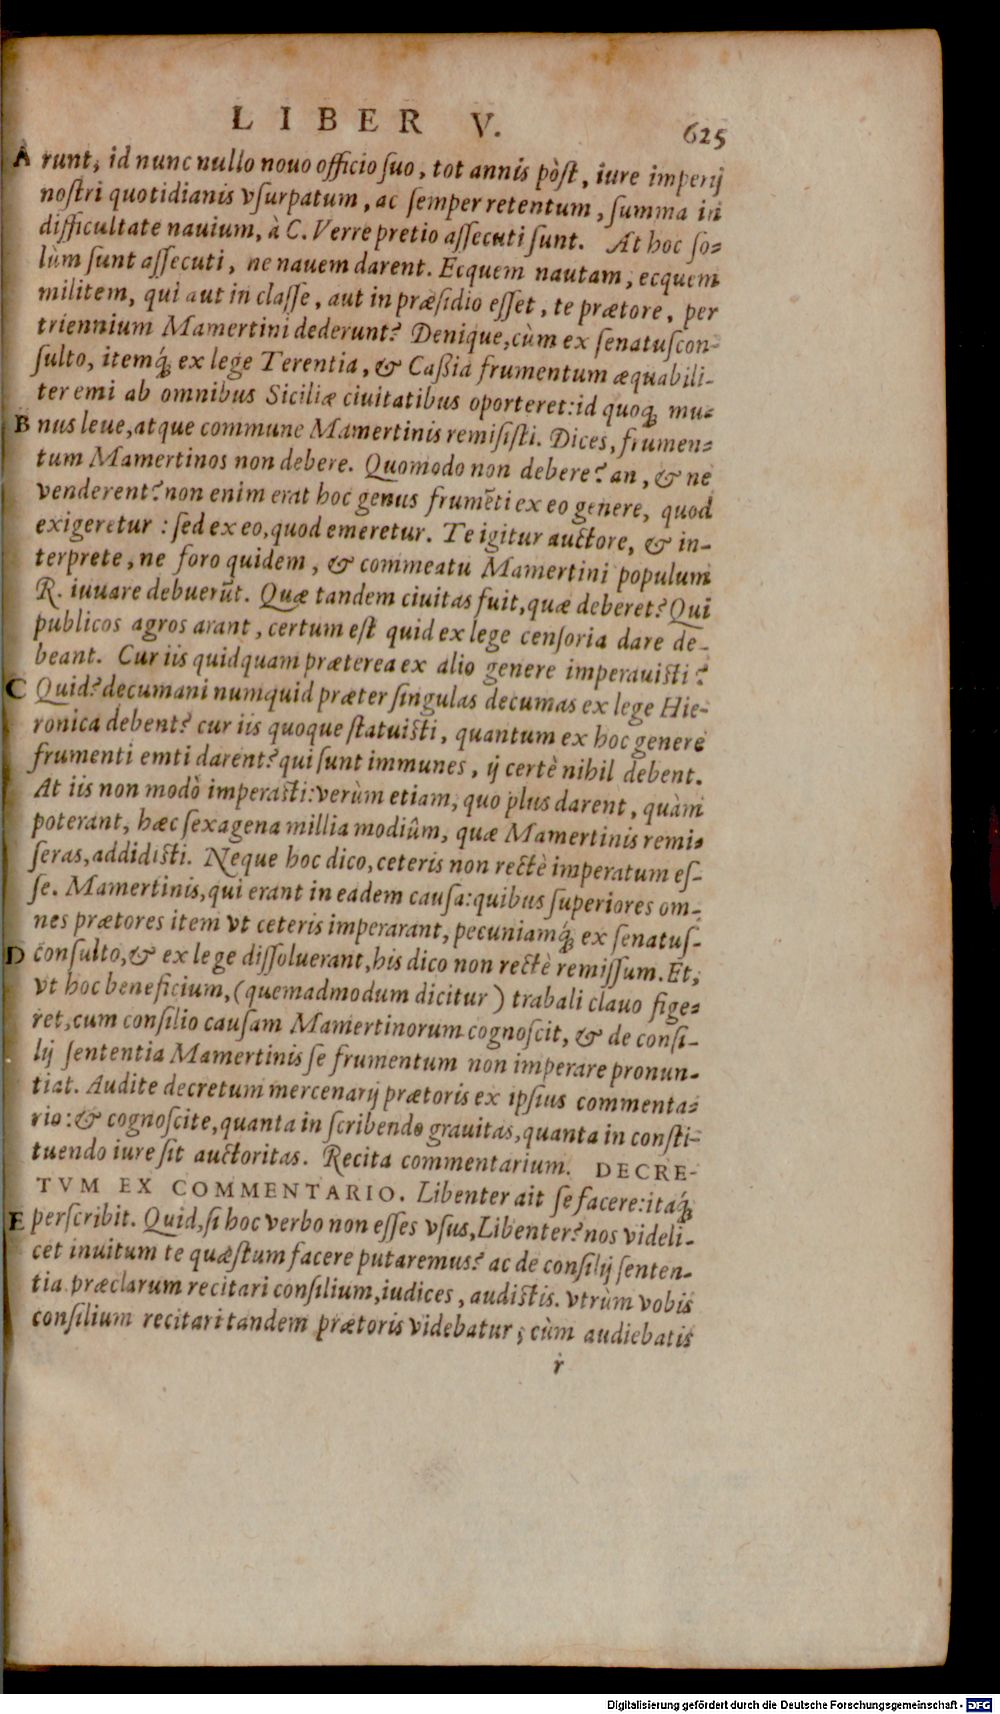 LIBER V. 625
A runt, id nunc nullo nouo officio suo, tot annis pòst, iure imperij
nostri quotidianis vsurpatum, ac semper retentum, summa in
difficultate nauium, à C. Verre pretio assecuti sunt. At hoc so-
lùm sunt assecuti, ne nauem darent. Ecquem nautam, ecquem
militem, qui aut in classe, aut in præsidio esset, te prætore, per
triennium Mamertini dederunt? Denique, cùm ex senatuscon-
sulto, itemq́; ex lege Terentia, & Caßia frumentum æquabili-
ter emi ab omnibus Siciliæ ciuitatibus oporteret: id quoq; mu-
B nus leue, atque commune Mamertinis remisisti. Dices, frumen-
tum Mamertinos non debere. Quomodo non debere? an, & ne
venderent? non enim erat hoc genus frumēti ex eo genere, quod
exigeretur: sed ex eo, quod emeretur. Te igitur auctore, & in-
terprete, ne foro quidem, & commeatu Mamertini populum
R. iuuare debuerūt. Quæ tandem ciuitas fuit, quæ deberet? Qui
publicos agros arant, certum est quid ex lege censoria dare de-
beant. Cur iis quidquam præterea ex alio genere imperauisti?
C Quid? decumani numquid præter singulas decumas ex lege Hie-
ronica debent? cur iis quoque statuisti, quantum ex hoc genere
frumenti emti darent? qui sunt immunes, ij certè nihil debent.
At iis non modò imperasti: verùm etiam, quo plus darent, quàm
poterant, hæc sexagena millia modiûm, quæ Mamertinis remi-
seras, addidisti. Neque hoc dico, ceteris non rectè imperatum es-
se. Mamertinis, qui erant in eadem causa: quibus superiores om-
nes prætores item vt ceteris imperarant, pecuniamq́; ex senatus-
D consulto, & ex lege dissoluerant, his dico non rectè remissum. Et,
vt hoc beneficium, (quemadmodum dicitur) trabali clauo fige-
ret, cum consilio causam Mamertinorum cognoscit, & de consi-
lij sententia Mamertinis se frumentum non imperare pronun-
tiat. Audite decretum mercenarij prætoris ex ipsius commenta-
rio: & cognoscite, quanta in scribendo grauitas, quanta in consti-
tuendo iure sit auctoritas. Recita commentarium. DECRE-
TVM EX COMMENTARIO. Libenter ait se facere: itaq́;
E perscribit. Quid, si hoc verbo non esses vsus, Libenter? nos videli-
cet inuitum te quæstum facere putaremus? ac de consilij senten-
tia præclarum recitari consilium, iudices, audistis. vtrùm vobis
consilium recitari tandem prætoris videbatur, cùm audiebatis
r
Digitalisierung gefördert durch die Deutsche Forschungsgemeinschaft - DFG